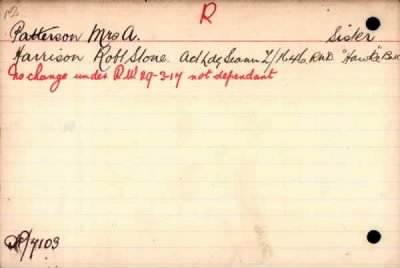 R
Patterson Mrs A. Sister
Harrison Robt Stone. Act Ldg Seamn Z/1646 RND. "Hawke" Batt
No change under R.W. 29-3-17 not dependant
/7103